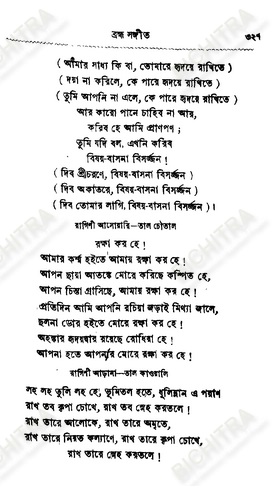 ব্রহ্ম সঙ্গীত ৩২৭
( আমার সাধ্য কি বা, তোমারে হৃদয়ে রাখিতে )
( দয়া না করিলে, কে পারে হৃদয়ে রাখিতে )
( তুমি আপনি না এলে, কে পারে হৃদয়ে রাখিতে )
আর কারো পানে চাহিব না আর,
করিব হে আমি প্রাণপণ;
তুমি যদি বল, এখনি করিব
বিষয়-বাসনা বিসর্জ্জন !
( দিব শ্রীচরণে, বিষয়-বাসনা বিসর্জ্জন )
( দিব অকাতরে, বিষয়-বাসনা বিসর্জ্জন )
( দিব তোমার লাগি, বিষয়-বাসনা বিসর্জ্জন ) ।
রাগিণী আসোয়ারি—তাল চৌতাল
রক্ষা কর হে !
আমার কর্ম্ম হইতে আমায় রক্ষা কর হে !
আপন ছায়া আতঙ্কে মোরে করিছে কম্পিত হে,
আপন চিন্তা গ্রাসিছে, আমায় রক্ষা কর হে !
প্রতিদিন আমি আপনি রচিয়া জড়াই মিথ্যা জালে,
ছলনা ডোর হইতে মোরে রক্ষা কর হে !
অহঙ্কার হৃদয়দ্বার রয়েছে রোধিয়া হে !
আপনা হতে আপনার মোরে রক্ষা কর হে !
রাগিণী আড়ানা—তাল কাওয়ালি
লহ লহ তুলি লহ হে, ভূমিতল হতে, ধূলিম্লান এ পরাণ
রাখ তব কৃপা চোখে, রাখ তব স্নেহ করতলে !
রাখ তারে আলোকে, রাখ তারে অমৃতে,
রাখ তারে নিয়ত কল্যাণে, রাখ তারে কৃপা চোখে,
রাখ তারে স্নেহ করতলে !
BICHITRA